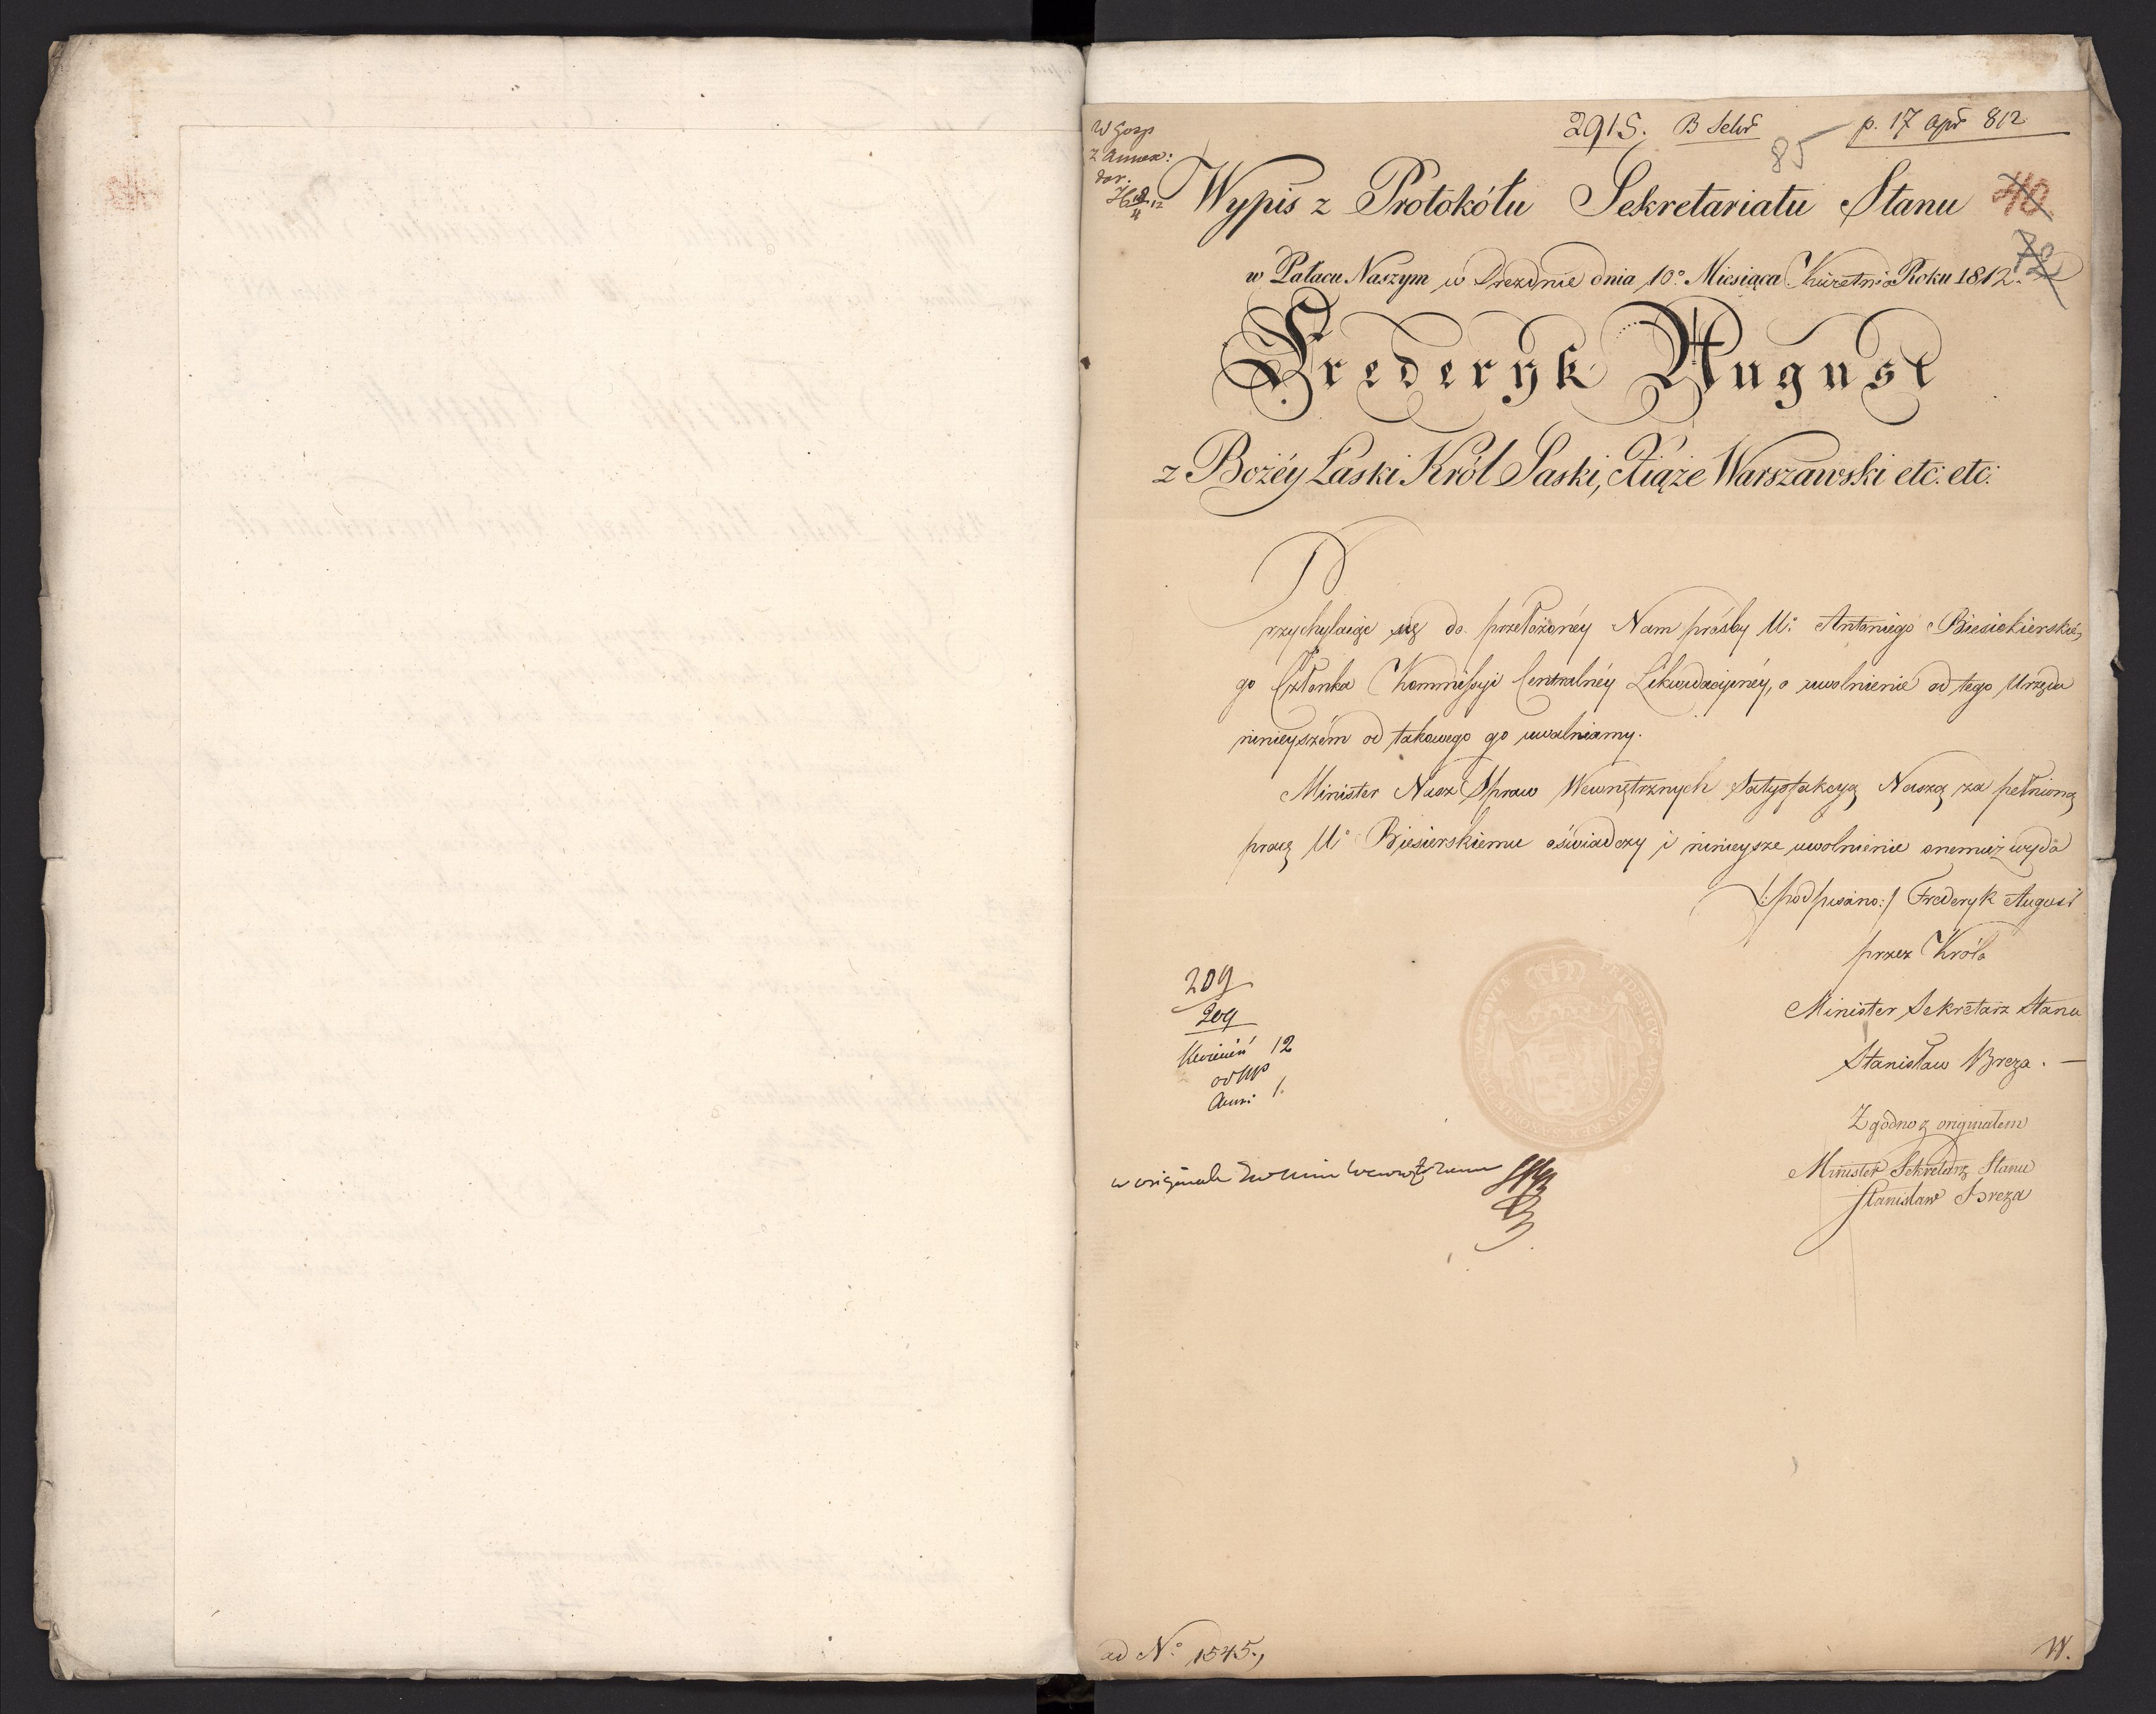 2915. B
p. 17 apr 812
85
z annex:
Wypis z Protokółu Sekretariatu Stanu
w Pałacu Naszym w Dreznie dnia 10º Miesiąca Kwietnia Roku 1812.
72
Frederyk August
z Bożéy Łaski Król Saski, Xiąże Warszawski etc: etc:
Przychylaiąc się do przełożonéy Nam prośby Uº Antoniego Biesiekierskie,
go Członka Kommissyi Centralnéy Likwidacyinéy, o uwolnienie od tego Urzędu
ninieyszém od takowego go uwalniamy.
Minister Nasz Spraw Wewnętrznych Satysfakcyą Naszą za pełnioną
pracę Uº Biesierskiemu oświadczy i ninieysze uwolnienie onemuż wyda
/:podpisano:/ Frederyk August
przez Króla
Minister Sekretarz Stanu
Stanisław Breza. —
Zgodno z originałem
Minister Sekretarz Stanu
Stanisław Breza
209
209
Kwiecień 12
1.
w originale
ad Nº 1545.,
W.